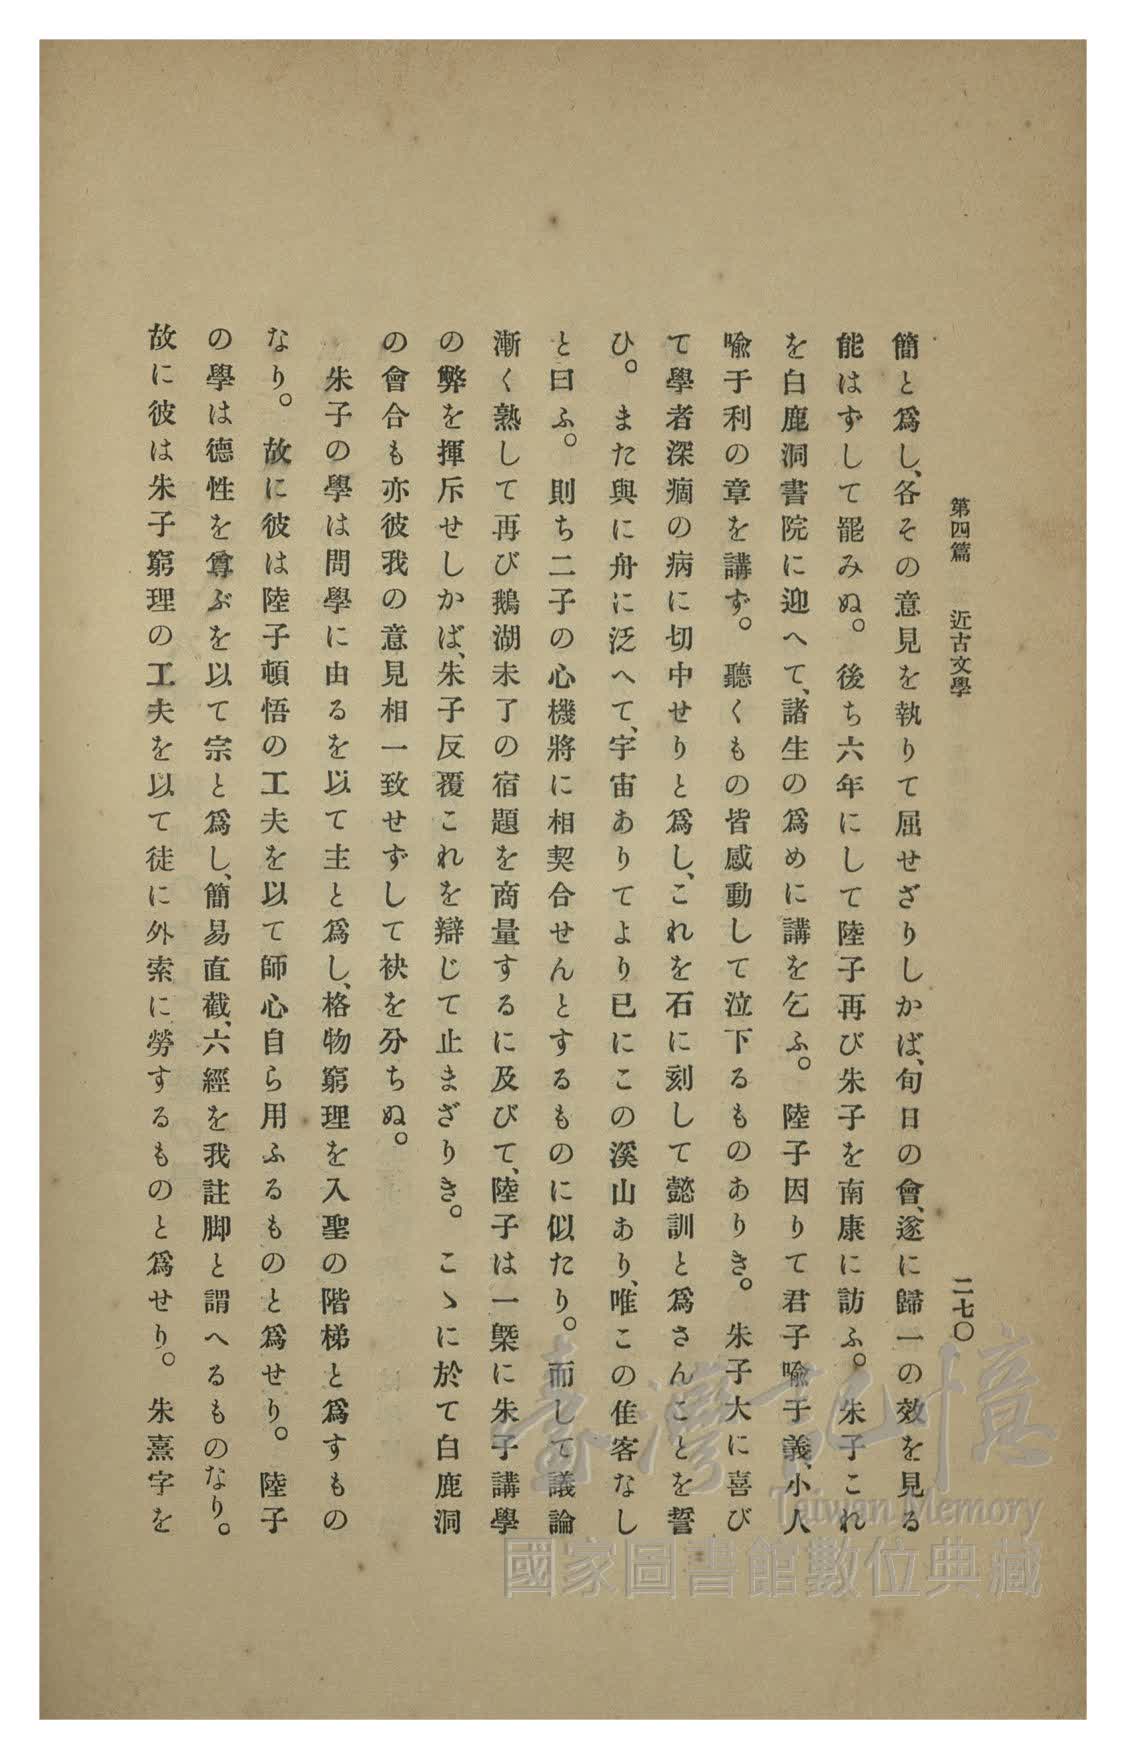 第四篇　近古文學
二七〇
簡と爲し、各その意見を執りて屈せざりしかば、旬日の會、遂に歸一の效を見る
能はずして罷みぬ。後ち六年にして陸子再び朱子を南康に訪ふ。朱子これ
を白鹿洞書院に迎へて、諸生の爲めに講を乞ふ。陸子因りて君子喩于義、小人
喩于利の章を講ず。聽くもの皆感動して泣下るものありき。朱子大に喜び
て學者深痼の病に切中せりと爲し、これを石に刻して懿訓と爲さんことを誓
ひ。また與に舟に泛へて、宇宙ありてより已にこの溪山あり、唯この佳客なし
と曰ふ。則ち二子の心機將に相契合せんとするものに似たり。而して議論
漸く熟して再び鵝湖未了の宿題を商量するに及びて、陸子は一槩に朱子講學
の弊を揮斥せしかば、朱子反覆これを辯じて止まざりき。こゝに於て白鹿洞
の會合も亦彼我の意見相一致せずして袂を分ちぬ。
朱子の學は問學に由るを以て主と爲し、格物窮理を入聖の階梯と爲すもの
なり。故に彼は陸子頓悟の工夫を以て師心自ら用ふるものと爲せり。陸子
の學は德性を尊ぶを以て宗と爲し、簡易直截、六經を我註脚と謂へるものなり。
故に彼は朱子窮理の工夫を以て徒に外索に勞するものと爲せり。朱熹字を
臺灣記憶
Taiwan Memory
國家圖書館數位典藏